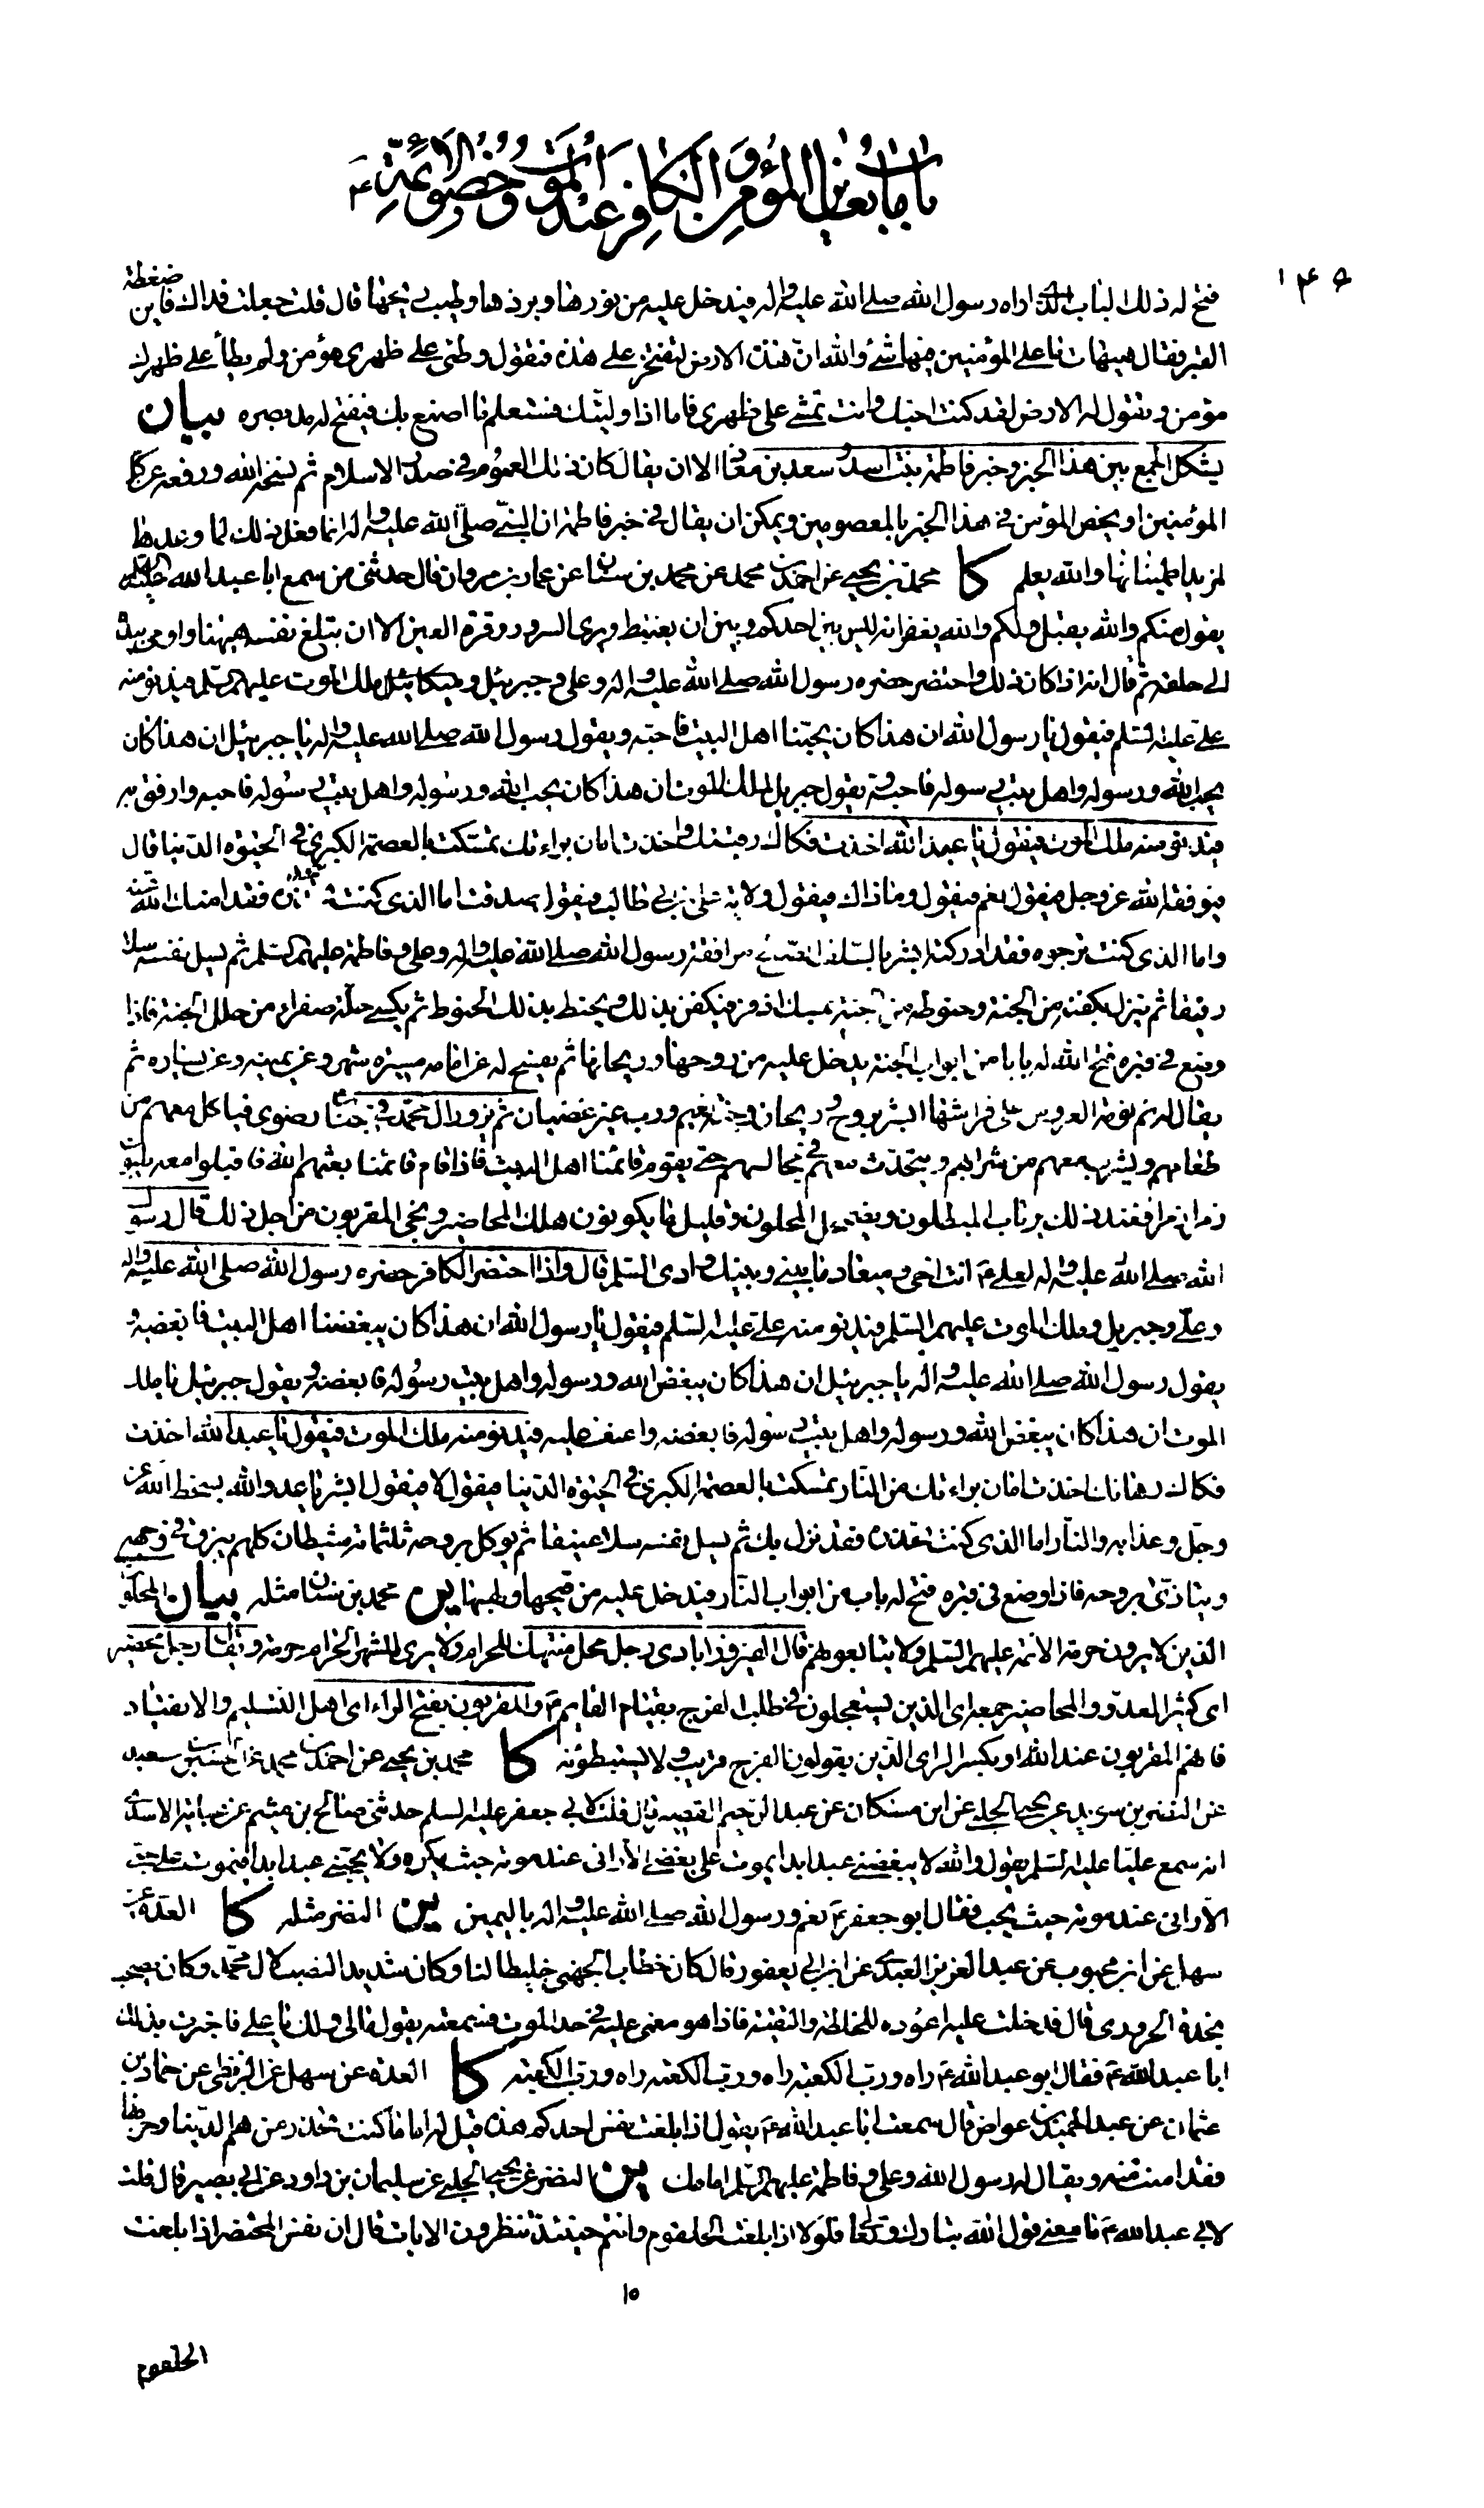 باب ما يعاين المؤمن و الكافر عند الموت و حضور الائمة ع
۱۴۵
فتح له ذلك الباب الذي اراه رسول الله صلى الله عليه واله فيدخل عليه من نورها وبردها وطيب ريحها قال قلت جعلت فداك فاين ضغطة
القبر فقال هيهات ما على المؤمنين منها شئ والله ان هذه الارض لتفتخر على هذه فتقول وطئ على ظهري مؤمن ولم يطأ على ظهرك
مؤمن وتقول له الارض لقد كنت احبك وانت تمشي على ظهري فاما اذا وليتك فستعلم ما اصنع بك فيفتح له مد بصره بيان
يشكل الجمع بين هذا الخبر وخبر فاطمة بنت اسد و سعد بن معاذ الا ان يقال كان ذلك العموم في صدر الاسلام ثم نسخه الله ورفعه عن كمّل
المؤمنين او يخص المؤمن في هذا الخبر بالمعصومين ويمكن ان يقال في خبر فاطمة ان النبي صلى الله عليه واله انما فعل ذلك لما وعدها
لمزيد اطمينانها والله يعلم كا محمد بن يحيى عن احمد بن محمد عن محمد بن سنان عن عمار بن مروان قال حدثني من سمع ابا عبد الله عليه السلام
يقول منكم والله يقبل ولكم والله يغفر انه ليس بين احدكم وبين ان يغتبط ويرى السرور وقرة العين الا ان بتلغ نفسه ههنا واومى بيده
الى حلقه ثم قال انه اذا كان ذلك واحتضر حضره رسول الله صلى الله عليه واله وعلي وجبرئيل وميكائيل وملك الموت عليهم السلم فيدنو منه
علي عليه السلم فيقول يا رسول الله ان هذا كان يحبنا اهل البيت فاحبه ويقول رسول الله صلى الله عليه واله يا جبرئيل ان هذا كان
يحب الله ورسوله واهل بيت رسوله فاحبه ويقول جبريل لملك الموت ان هذا كان يحب الله ورسوله واهل بيت رسوله فاحبه وارفق به
فيدنو منه ملك الموت فيقول يا عبد الله اخذت فكاك رقبتك واخذت امان براءتك تمسكت بالعصمة الكبرى في الحيوة الدنيا قال
فيوفقه الله عز وجل فيقول نعم فيقول وما ذاك فيقول ولاية علي بن ابي طالب فيقول صدقت اما الذي كنت تحذره فقد امنك الله منه
واما الذي كنت ترجوه فقد ادركته ابشر بالسلف الصالح مرافقة رسول الله صلى الله عليه واله وعلي وفاطمة عليهم السلم ثم يسل نفسه سلا
رفيقا ثم ينزل بكفنه من الجنة وحنوطه من الجنة بمسك اذفر فيكفن بذلك ويحنط بذلك الحنوط ثم يكسى حلة صفراء من حلل الجنة فاذا
وضع في قبره فتح الله له بابا من ابواب الجنة يدخل عليه من روحها وريحانها ثم يفسح له عن امامه مسيرة شهر وعن يمينه وعن يساره ثم
يقال له نم نومة العروس على فراشها ابشر بروح وريحان وجنة نعيم ورب غير غضبان ثم يزور آل محمد في جنان رضوى فياكل معهم من
طعامهم ويشرب معهم من شرابهم ويتحدث معهم في مجالسهم حتى يقوم قائمنا اهل البيت فاذا قام قائمنا بعثهم الله فاقبلوا معه يلبون
زمرا زمرا فعند ذلك يرتاب المبطلون ويضمحل المحلون وقليل ما يكونون هلك المحاضير ونجى المقربون من اجل ذلك قال رسول
الله صلى الله عليه واله لعلي ع انت اخي وميعاد ما بيني وبينك وادي السلم قال واذا احتضر الكافر حضره رسول الله صلى الله عليه واله
وعلي وجبريل وملك الموت عليهم السلم فيدنو منه علي عليه السلم فيقول يا رسول الله ان هذا كان يبغضنا اهل البيت فابغضه و
يقول رسول الله صلى الله عليه واله يا جبرئيل ان هذا كان يبغض الله ورسوله واهل بيت رسوله فابغضه ويقول جبرئيل يا ملك
الموت ان هذا كان يبغض الله ورسوله واهل بيت رسوله فابغضه واعنف عليه فيدنو منه ملك الموت فيقول يا عبد الله اخذت
فكاك رهانك اخذت امان براءتك من النار تمسكت بالعصمة الكبرى في الحيوة الدنيا فيقول لا فيقول ابشر يا عدو الله بسخط الله عز
وجل وعذابه والنار اما الذي كنت تحذره فقد نزل بك ثم يسل نفسه سلا عنيفا ثم يوكل بروحه ثلثمائة شيطان كلهم يبزق في وجهه
ويتاذى بروحه فاذا وضع في قبره فتح له باب من ابواب النار فيدخل عليه من قيحها ولهبها ين محمد بن سنان مثله بيان المحلون
الذين لا يرون حرمة الائمة عليهم السلم ولا يتابعونهم قال الفيروزابادي رجل محل منتهك للحرام ولا يرى للشهر الحرام حرمة و يقال رجل محضير
اي كثير العدو والمحاضير جمعه اي الذين يستعجلون في طلب الفرج بقيام القايم ع والمقربون بفتح الراء اي اهل التسليم والانقياد
فانهم المقربون عند الله او بكسر الراء اي الذين يقولون الفرج قريب ولا يستبطؤنه كا محمد بن يحيى عن احمد بن محمد عن الحسين بن سعيد
عن النضر بن سويد عن يحيى الحلبي عن ابن مسكان عن عبد الرحيم القصير قال قلت لابي جعفر عليه السلم حدثني صالح بن ميثم عن عباية الاسدي
انه سمع عليا عليه السلم يقول والله لا يبغضني عبد ابدا يموت على بغضي الا راني عند موته حيث يكره ولا يحبني عبد ابدا فيموت على حبي
الا راني عند موته حيث يحب فقال ابو جعفر ع نعم ورسول الله صلى الله عليه واله باليمين ين النضر مثله كا العدة عن
سهل عن ابن محبوب عن عبد العزيز العبدي عن ابن ابي يعفور قال كان خطاب الجهني خليطا لنا وكان شديد النصب لآل محمد وكان يصحب
نجدة الحروري قال فدخلت عليه اعوده للخلطة والتقية فاذا هو مغمى عليه في حد الموت فسمعته يقول مالي ولك يا علي فاخبرت بذلك
ابا عبد الله ع فقال ابو عبد الله ع راه ورب الكعبة راه ورب الكعبة راه ورب الكعبة كا العدة عن سهل عن البزنطي عن حماد بن
عثمان عن عبد الحميد بن عواض قال سمعت ابا عبد الله ع يقول اذا بلغت نفس احدكم هذه قيل له اما ما كنت تحذر من هم الدنيا وحزنها
فقد امنت منه ويقال له رسول الله وعلي وفاطمة عليهم السلم امامك ين النضر عن يحيى الحلبي عن سليمان بن داود عن ابي بصير قال قلت
لابي عبد الله ع ما معنى قول الله تبارك وتعالى فلولا اذا بلغت الحلقوم وانتم حينئذ تنظرون الايات قال ان نفس المحتضر اذا بلغت
۱۵
الحلقوم